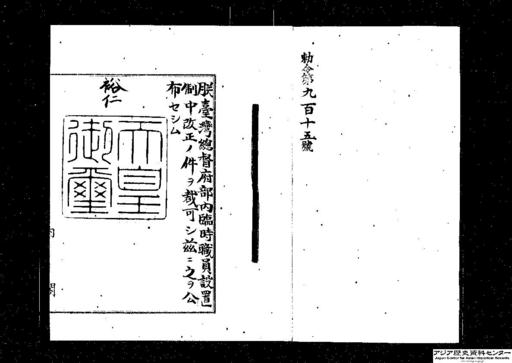 勅令第九百十五號
朕臺灣總督府部內臨時職員設置
制中改正ノ件ヲ裁可シ茲ニ之ヲ公
布セシム
裕仁
天皇
御璽
内
閣
アジア歴史資料センター
Japan Center for Asian Historical Records